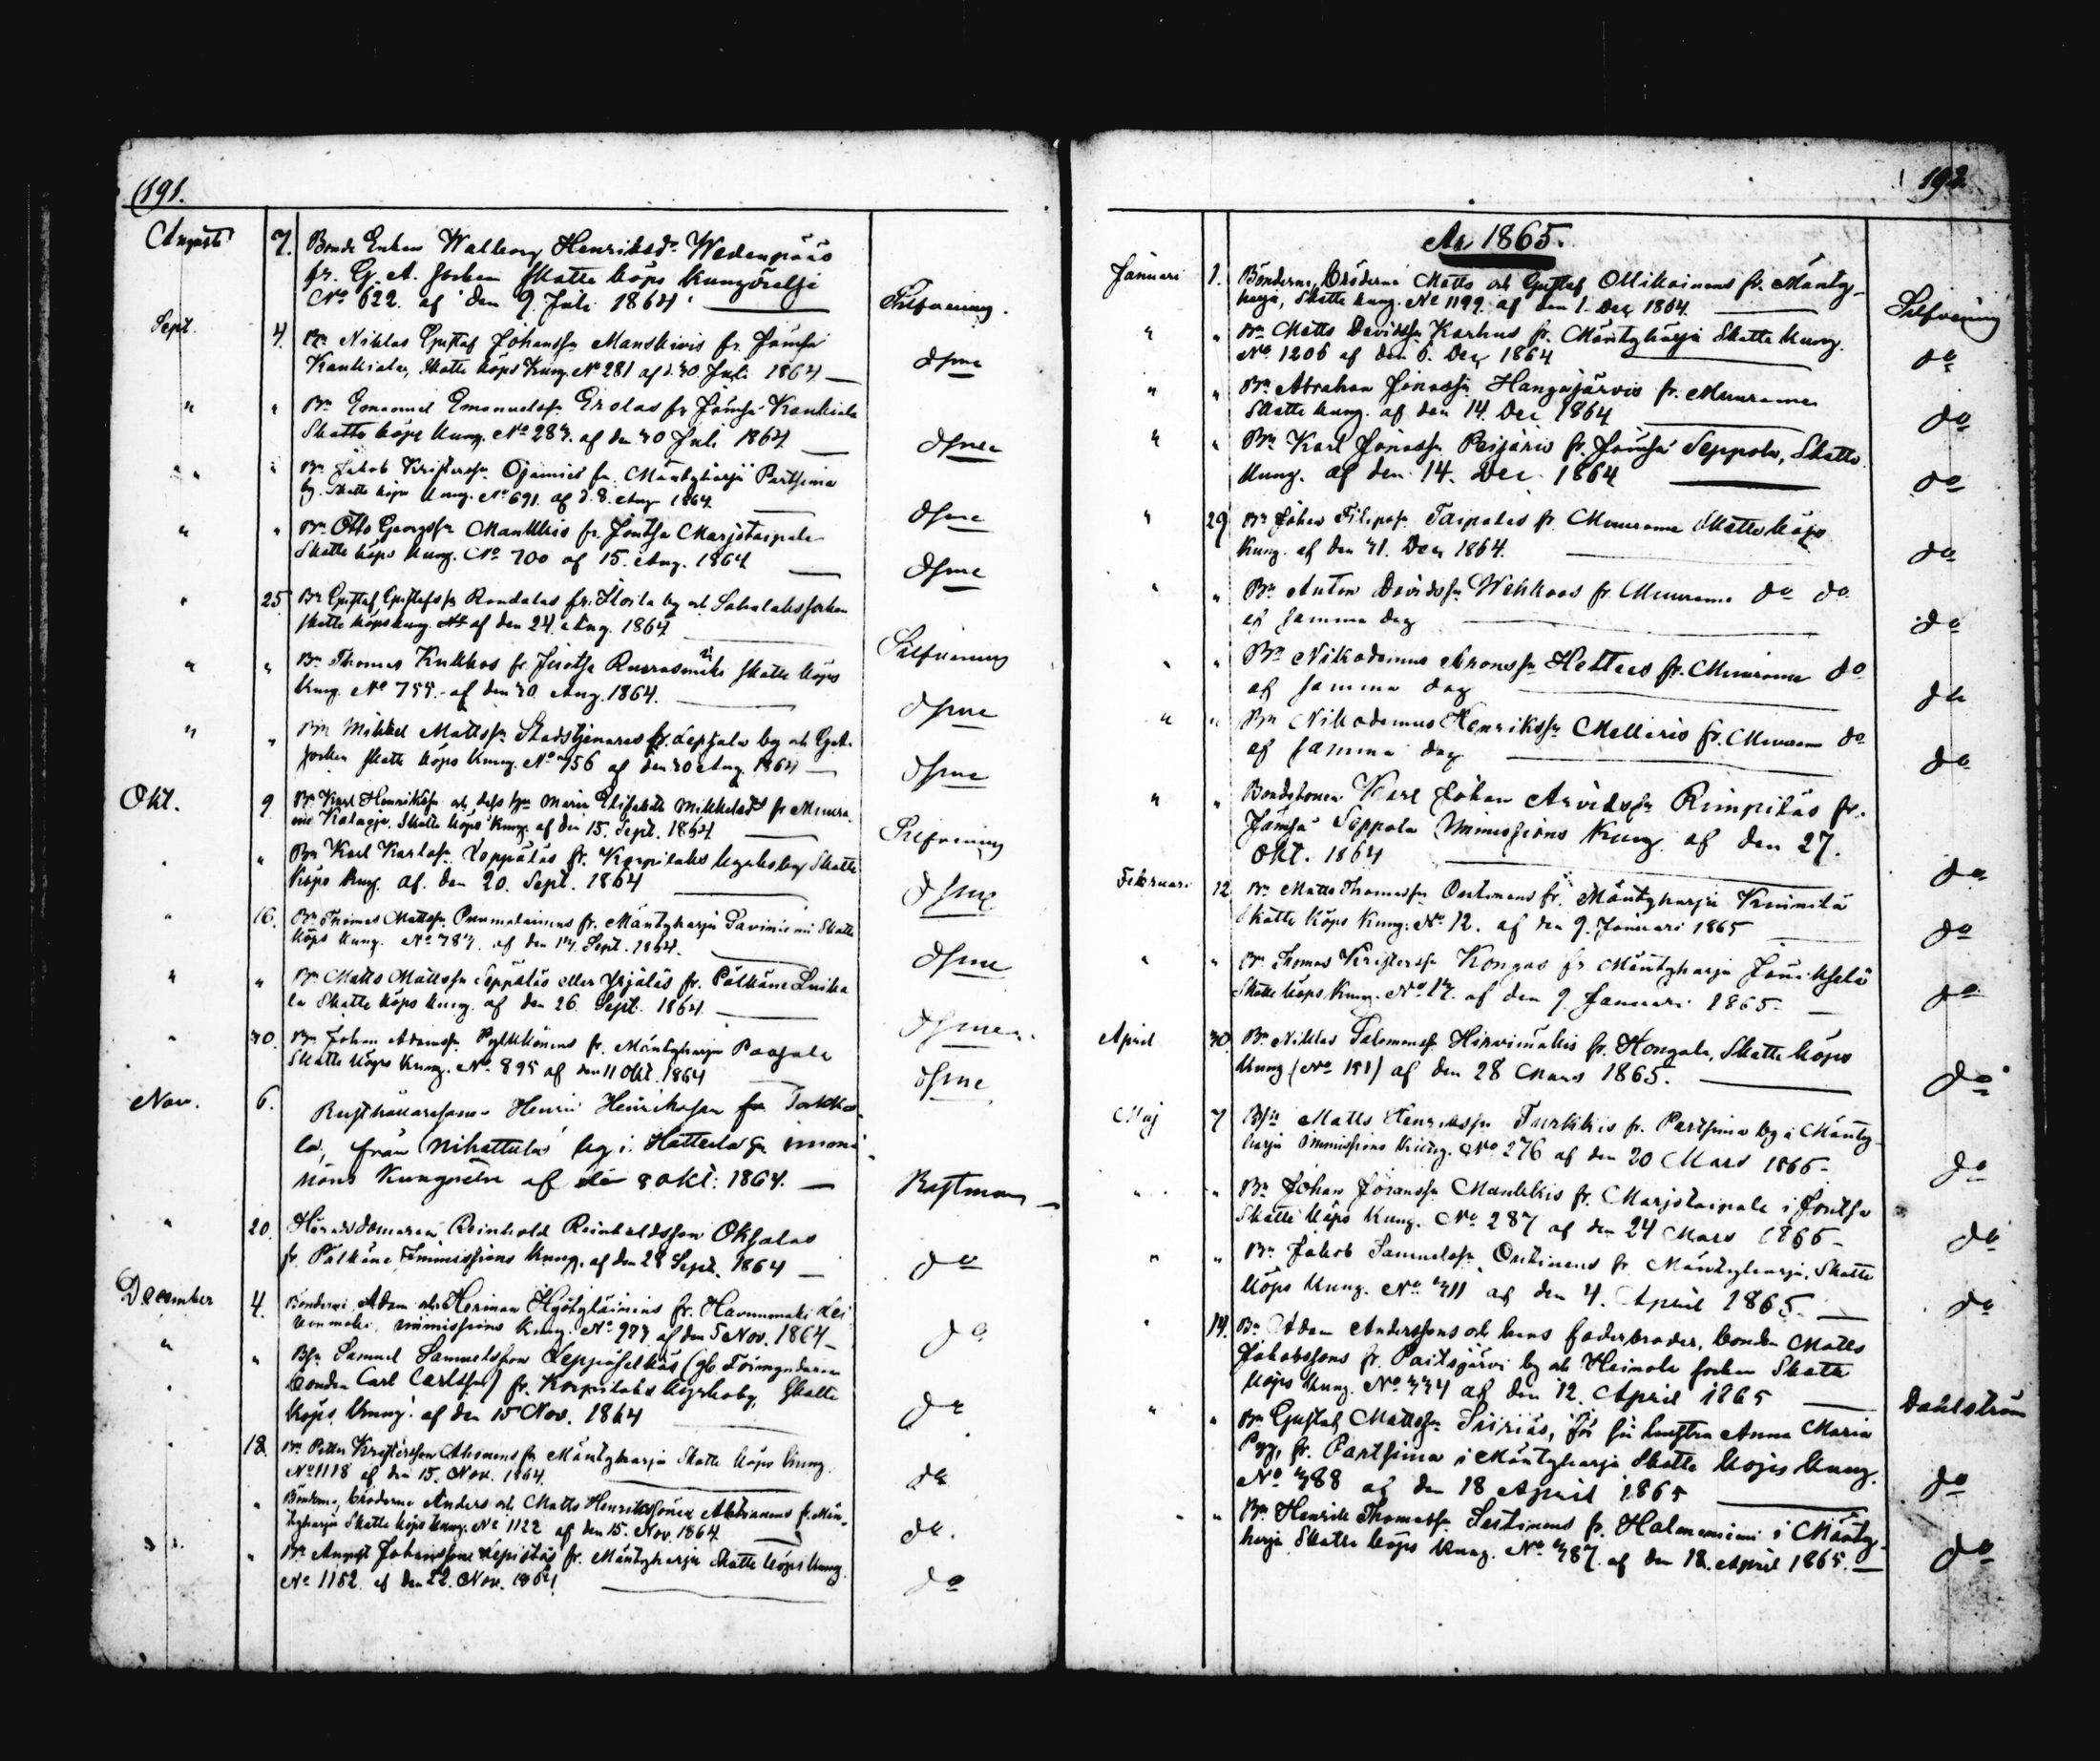 191.
Augusti 7. Bonde Enkan Walborg Henriksdr Wedenpääs
fr. G. A. Socken Skatte köps kungörelse
No 622. af den 9. Juli 1864. Silfvening.
Sept. 4. Bn Niklas Gustaf Johanssn Manskivis fr. Jämsä
Kankiala, Skatte köps Kung. No 281 af d. 30. Juli 1864 — dsme
" " Bn Emanuel Emanuelssn Erolas fr Jämsä Kankiala
Skatte köps Kung. No 283. af den 30 Juli 1864 — dsme
" " Bn Jakob Kristerssn Ojanies fr. Mäntyharju Partsima
by. Skatte köps Kung. No 691. af d. 8. Aug 1864 dsme
" " Bn Otto Georgssn Maukkis fr. Joutsa Marjotaipale
Skatte köps Kung. No 700 af 15. Aug. 1864 — dsme
" 25. Bn Gustaf Gustafssn Rondalas fr.
Skatte köps kung. af den 24. Aug. 1864 Silfvening
" " Bn Thomas Kukkos fr. Joutsa Ruorasmäki Skatte köps
Kung. No 755. af den 30. Aug. 1864. dsme
" " Bn Mikkel Mattssn Stadstjenares fr. Lepsala by och G.A.
Socken Skatte köps Kung. No 756 af den 30 Aug. 1864 — dsme
Okt. 9 Bn Karl Henrikssn och dess hu Maria Elisabeth Mikkelsdr fr Muura-
me Kalaoja. Skatte köps Kung. af den 15. Sept. 1864 Silfvening
" " Bn Karl Karlssn Loppäläs fr. Korpilaks kyrkoby Skatte
köps kung. af. den 20. Sept. 1864 dsme
" 16. Bn Thomas Mattssn Pummalainens fr. Mäntyharju Saviniemi Skatte
köps kung. No 787. af den 13. Sept. 1864. dsme
" " Bn Matts Mattssn Seppäläs eller Yrjäläs fr. Pälkäne Luika
la Skatte köps kung. af den 26 Sept. 1864. — dsme
" 30. Bn Johan Adamssn Pylkkönens fr. Mäntyharju Paasola
Skatte köps kung. No 895 af den 11 Okt. 1864 dsme
Nov. 6. Rusthållaresonen Henric Henriksson fr Torkko-
la, från Nihattula by i Hattula sn immis-
sions Kungörelse af den 8 Okt: 1864. — Rostman
" 20. Häradsdomaren Reinhold Reinholdsson Oksalas
fr. Pälkäne Immissions kung. af den 28 Sept. 1864 — do
December 4. Bönderne Adam och Herman Hyötyläinens fr. Havumäki Lei
vonmäki, immissions kung. No 973 af den 5 Nov. 1864 — do
" " Bsn Samuel Samuelsson Leppäselkäs (gb Förmyndaren
bonden Carl Carlssn) fr. Korpilaks kyrkoby, Skatte
köps kung. af den 15 Nov. 1864 do
" 18. Bn Petter Kristersson Ahonens fr Mäntyharju Skatte köps kung.
No 1118 af den 15. Nov. 1864. do
" " Bönderne, bröderne Anders och Matts Henrikssöner Ahtiainens fr. Män-
tyharju Skatte köps kung. No 1122 af den 15. Nov. 1864 do.
" " Bn August Johanssons Lepistös fr. Mäntyharju Skatte köps kung.
No 1152 af den 22. Nov. 1864 do
192
År 1865.
Januari 1. Bönderne, bröderne Matts och Gustaf Ollikainens fr. Mänty-
harju, Skatte kung. No 1199 af den 1. Dec 1864. Silfvening
" " Bn Matts Davidssn Karhus fr. Mäntyharju Skatte kung.
No 1206 af den 6. Dec 1864 do
" " Bn Abraham Jonassn Hangasjärvis fr. Muurame
Skatte kung. af den 14. Dec 1864 do
" " Bn Karl Jonassn Peijaris fr. Jämsä Seppola, Skatte
kung. af den 14. Dec 1864 do
" 29 Bn Johan Filipssn Taipales fr. Muurame Skatte köps
kung. af den 31. Dec 1864. do
" " Bn Anton Davidssn Wehkoos fr Muurame do do
af samma dag do
" " Bn Nikodemus Aronssn Hettees fr. Muurame do
af samma dag do
" " Bn Nikodemus Henrikssn Melleris fr. Muurame do
af samma dag do
" " Bondesonen Karl Johan Arvidssn Rimpiläs fr.
Jämsä Seppola Immissions Kung. af den 27.
Okt. 1864 do
Februari 12 Bn Matts Thomassn Outinens fr. Mäntyharju
Skatte köps Kung. No 12. af den 9. Januari 1865 do
" " Bn Thomas Kristerssn Kongas fr Mäntyharju
Skatte köps kung. No 13. af den 9 Januari 1865. — do
April 30. Bn Niklas Salomonssn Hirvimäkis fr. Hongola, Skatte köps
kung (No 151) af den 28 Mars 1865. do
Maj 7 Bsn Matts Henrikssn Turkkis fr. Partsima by i Mänty-
harju Immissions kung. No 276 af den 20 Mars 1865 - do
" " Bn Johan Göranssn Maukkis fr. Marjotaipale i Joutsa
Skatte köps kung. No 287 af den 24 Mars 1865 - do
" " Bn Jakob Samuelssn Outinens fr. Mäntyharju, Skatte
köps kung. No 311 af den 4. April 1865. — do
" 14. Bn Adam Anderssons och hans faderbroder, bonden Matts
Jakobssons fr. Paitsjärvi by och Heinola socken Skatte
köps kung. No 334 af den 12. April 1865 — Dahlström
" " Bn Gustaf Mattssn Siiriäs, för sin hustru Anna Maria
fr. Partsima i Mäntyharju Skatte köps kung.
No 388 af den 18 April 1865 do
" " Bn Henrik Thomassn Lestinens fr. Halmeniemi i Mänty-
harju Skatte köps kung. No 387. af den 18. April 1865. — do